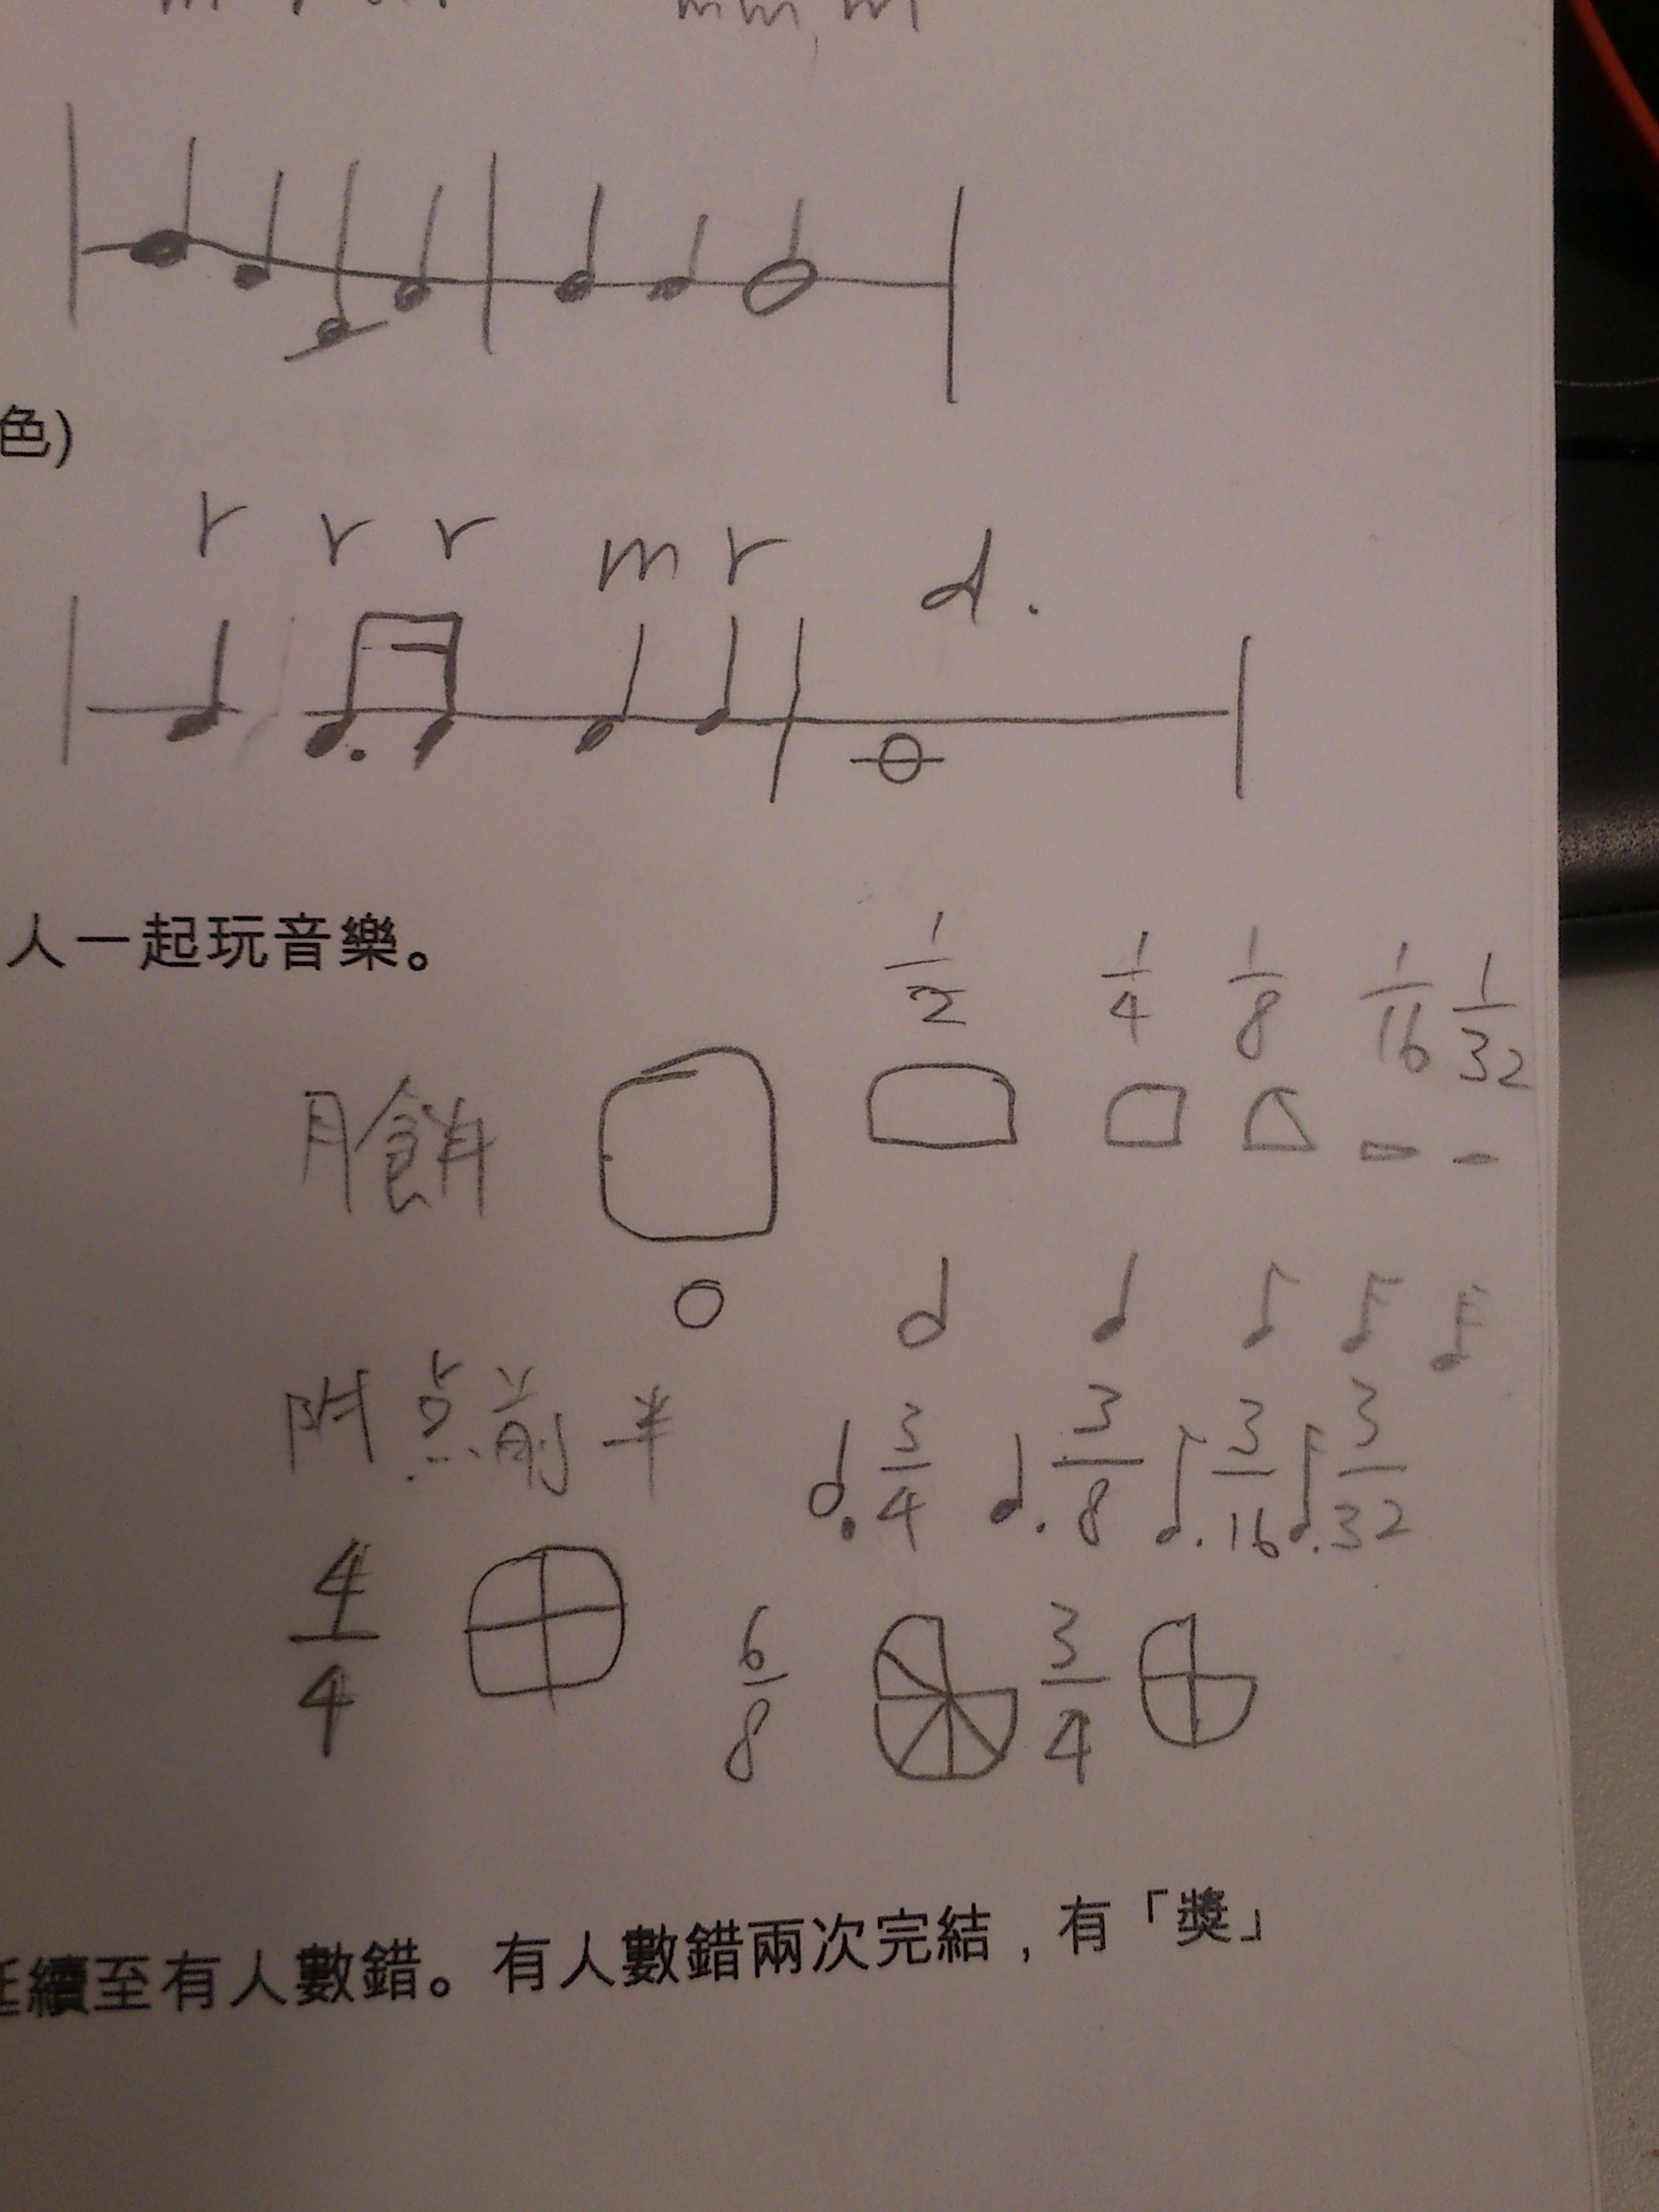 色)
r r r m r d .
人一起玩音樂。
1/2 1/4 1/8 1/16 1/32
月餅
附点前半 3/4 3/8 3/16 3/32
4/4 6/8 3/4
續至有人數錯。有人數錯兩次完結，有「獎」